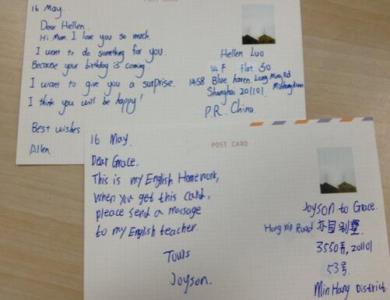 16 May.
Dear Hellen
Hi Mum I love you so much
I want to do something for you.
Because your birthday is coming
I want to give you a surprise.
I think you will be happy!
Best wishes
Allen.
Hellen Luo
Flat 50
1458 Blue haven Long Ming Rd
Shanghai 201101
P.R. China
POST CARD
16 May.
Dear Grace.
This is my English Homework,
when you get this card,
please send a message
to my English teacher.
Yours
Joyson.
Joyson to Grace.
Road
3550弄, 201101
53号
MinHang District